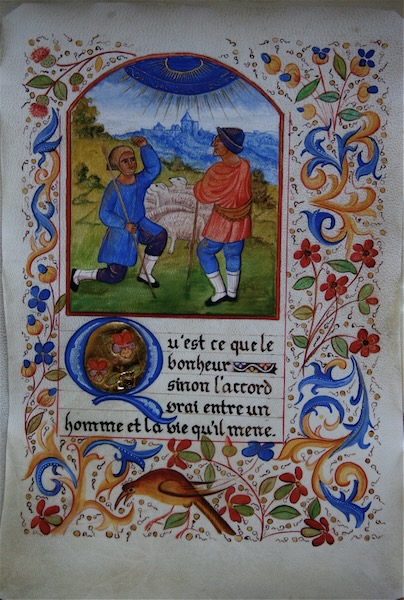 Qu'est ce que le
bonheur
sinon l'accord
vrai entre un
homme et la vie qu'il mene.